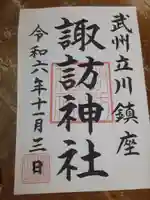 武州立川鎮座
諏訪神社
令和六年十一月三日